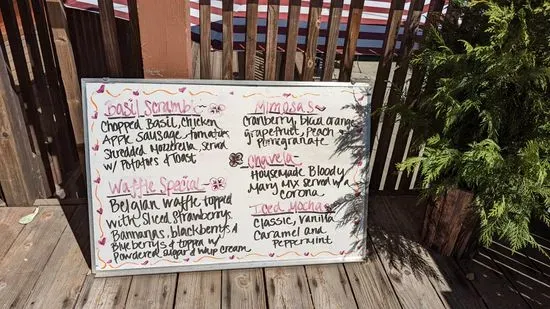 Basil Scramble
Chopped Basil, Chicken
Apple Sausage, tomatoes
Shredded Mozzerella, served
w/ Potatoes & Toast
Waffle Special
Belgian waffle topped
with Sliced Strawberrys,
Bannanas, blackberrys &
Blueberrys & topped w/
Powdered sugar & whip cream
Mimosas
Cranberry, blood orange
grapefruit, Peach &
Pomegranate
Chavela
Housemade Bloody
Mary Mix served w/ a
Corona
Iced Mocha
Classic, Vanilla
Caramel and
Peppermint